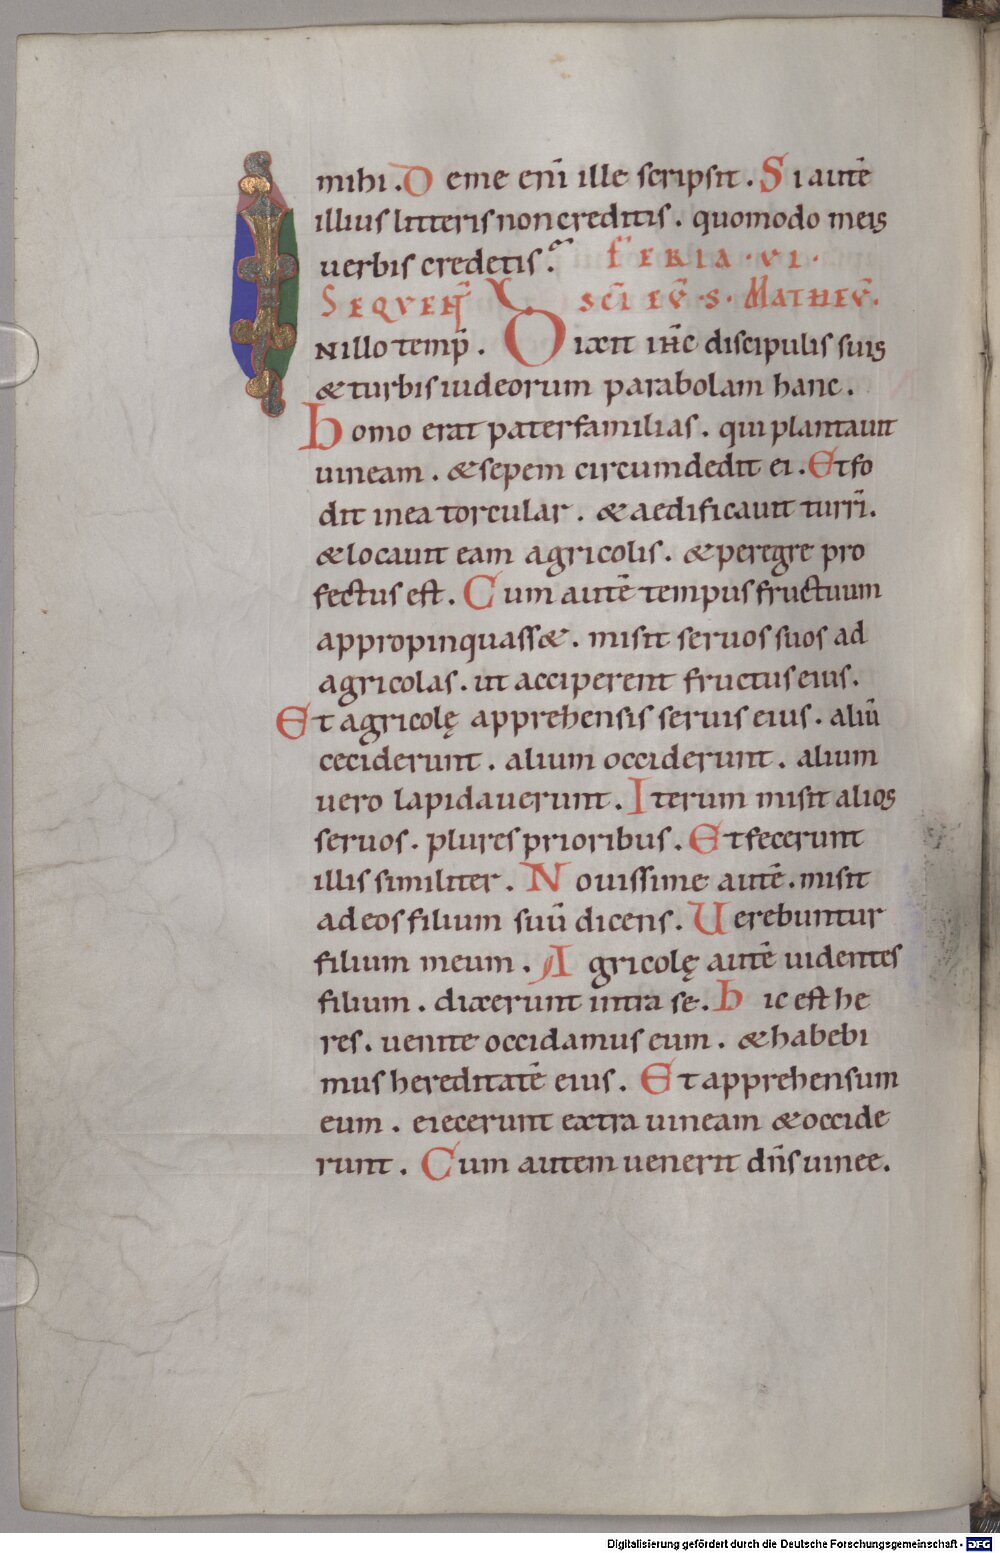 mihi. De me enī ille scripsit. Si autē
illius litteris non creditis. quomodo meis
uerbis credetis? FERIA · VI ·
SEQVEN̄T SC̄I EV̄·S· MATHEV̄.
INillo temp̄. Dixit ih̄c discipulis suis
& turbis iudeorum parabolam hanc.
homo erat paterfamilias. qui plantauit
uineam. & sepem circumdedit ei. Et fo
dit in ea torcular. & aedificauit turrī.
& locauit eam agricolis. & peregre pro
fectus est. Cum autē tempus fructuum
appropinquass&. misit seruos suos ad
agricolas. ut acciperent fructus eius.
Et agricolę apprehensis seruis eius. aliū
ceciderunt. alium occiderunt. alium
uero lapidauerunt. Iterum misit alios
seruos. plures prioribus. Et fecerunt
illis similiter. Nouissime autē. misit
ad eos filium suū dicens. Uerebuntur
filium meum. Agricolę autē uidentes
filium. dixerunt intra se. hic est he
res. uenite occidamus eum. & habebi
mus hereditatē eius. Et apprehensum
eum. eiecerunt extra uineam & occide
runt. Cum autem uenerit dn̄s uinee.
Digitalisierung gefördert durch die Deutsche Forschungsgemeinschaft - DFG